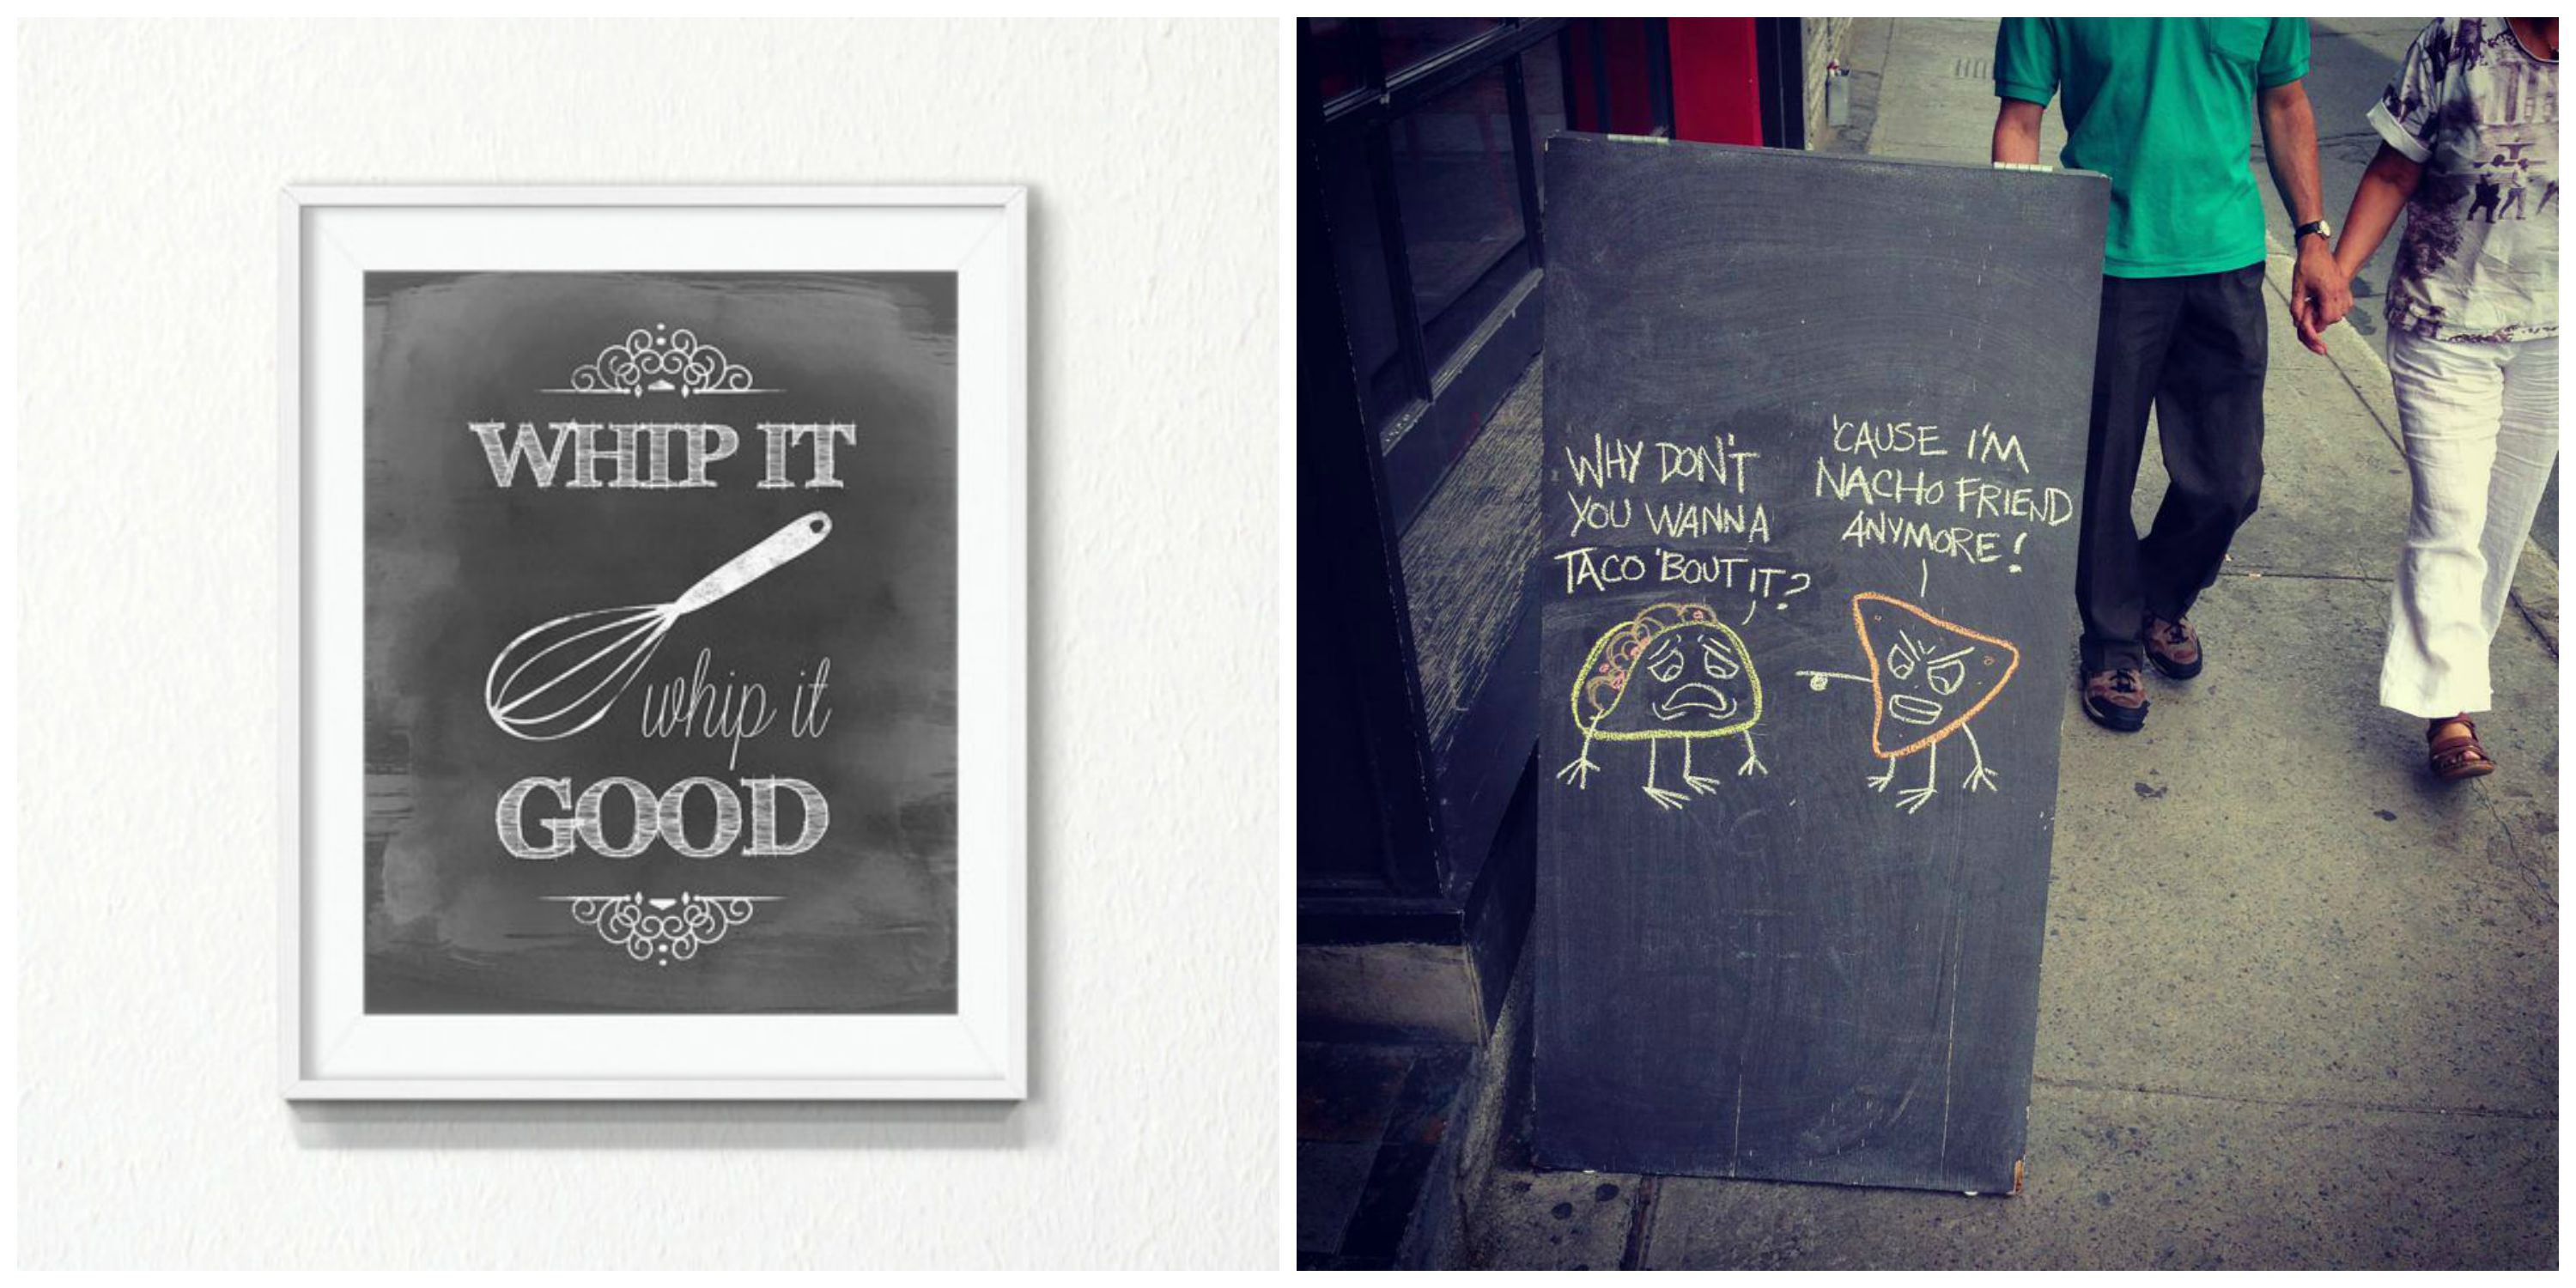 WHIP IT
whip it
GOOD
WHY DON'T
YOU WANNA
TACO 'BOUT IT?
'CAUSE I'M
NACHO FRIEND
ANYMORE!